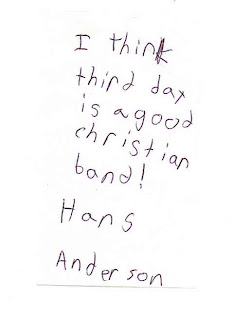 I think
third day
is a good
christian
band!
Hans
Anderson